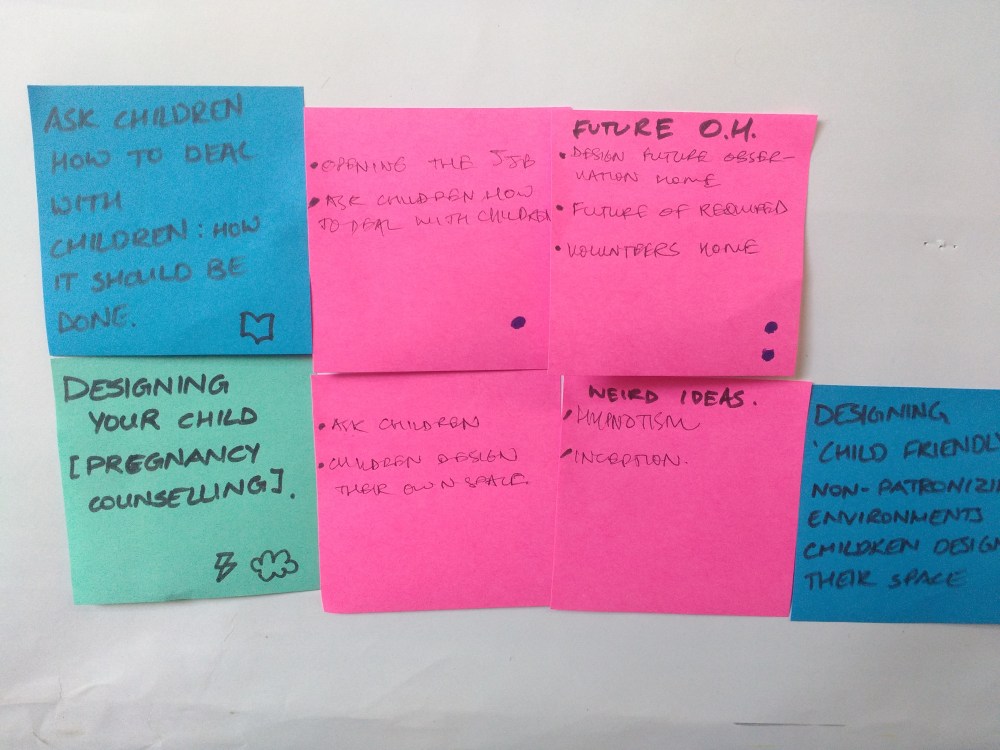 ASK CHILDREN
HOW TO DEAL
WITH
CHILDREN: HOW
IT SHOULD BE
DONE.
• OPENING THE JJB
• ASK CHILDREN HOW
TO DEAL WITH CHILDREN
FUTURE O.H.
• DESIGN FUTURE OBSER-
VATION HOME
• FUTURE OF REQUIRED
• VOLUNTEERS HOME
DESIGNING
YOUR CHILD
[PREGNANCY
COUNSELLING].
• ASK CHILDREN
• CHILDREN DESIGN
THEIR OWN SPACE.
WEIRD IDEAS.
• HYPNOTISM
• INCEPTION.
DESIGNING
'CHILD FRIENDLY
NON-PATRONIZI
ENVIRONMENTS
CHILDREN DESIGN
THEIR SPACE